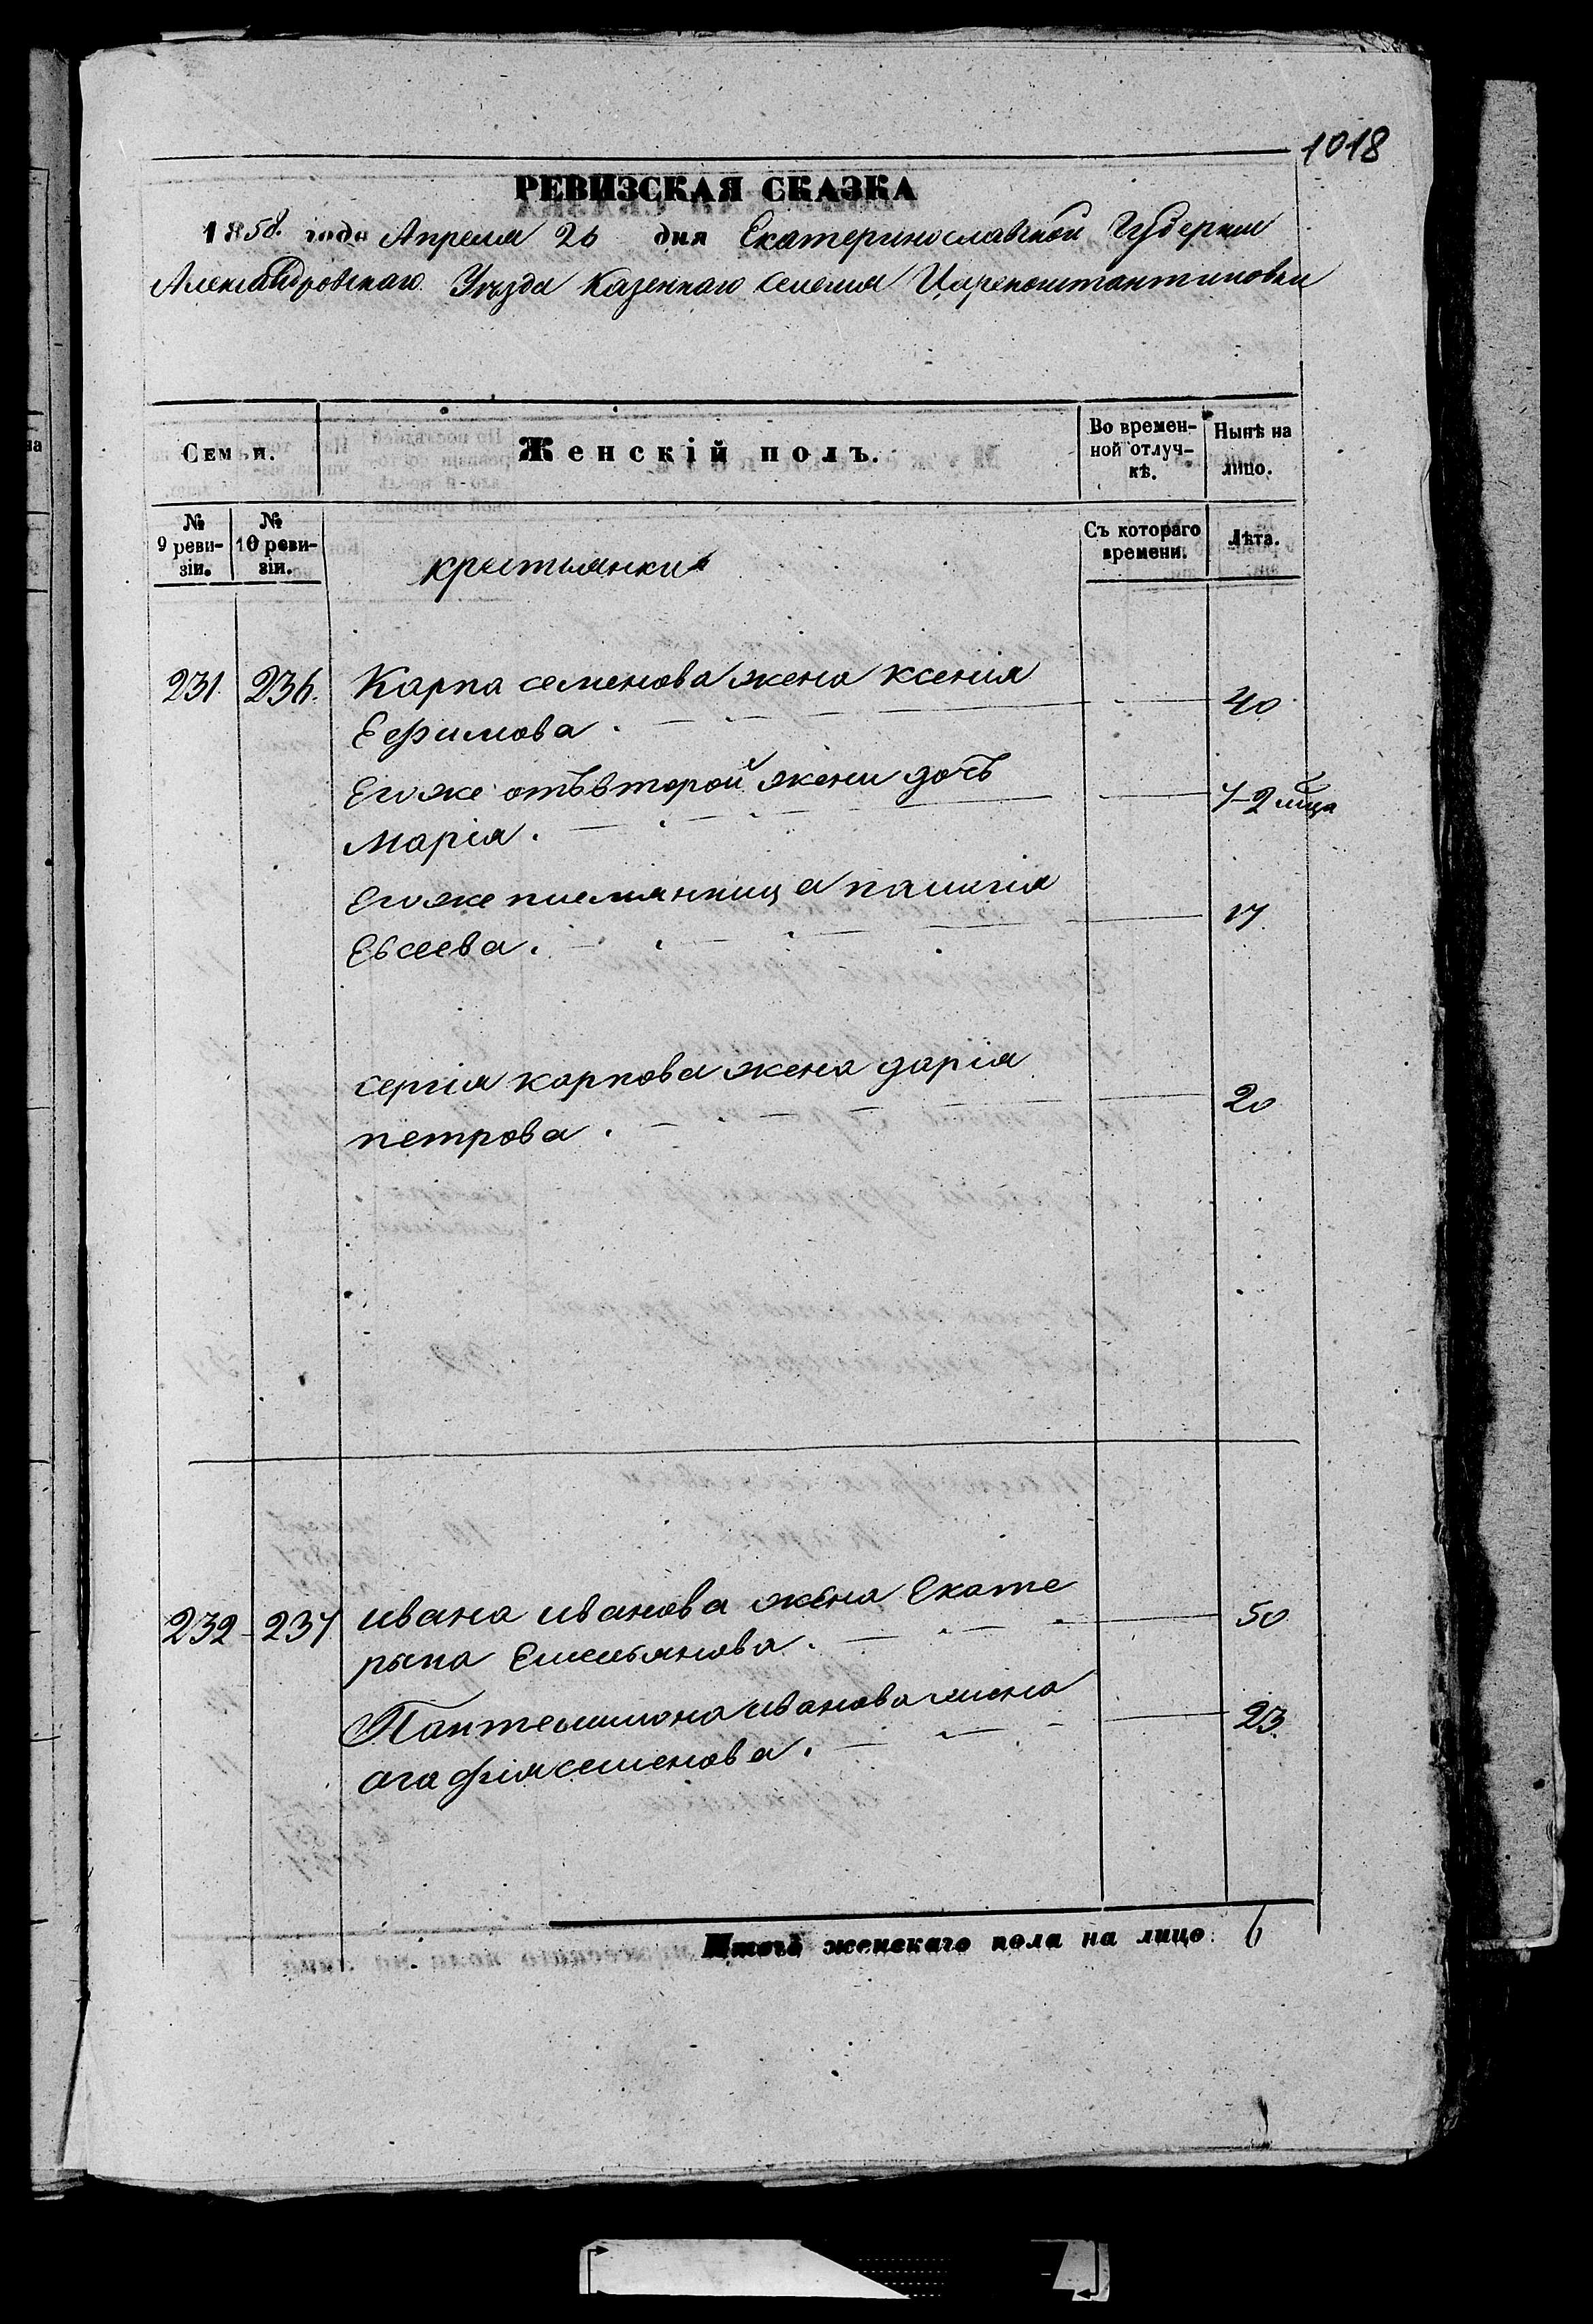 1018
РЕВИЗСКАЯ СКАЗКА
1858. года Апреля 26 дня Екатеринославской Губернии
Александровскаго Уѣзда Казеннаго селения Цареконстантиновки
Семьи.
Женскій полъ.
Во времен-
ной отлуч-
кѣ.
Нынѣ на
лицо.
№
9 реви-
зіи.
№
10 реви-
зіи.
крестьянки
Съ котораго
времени.
Лѣта.
231. 236. Карпа семенова жена ксенія
Ефимова. 40
Егоже отъ второй жены дочь
Марія.
Егоже племянница палагія
Евсеева. 17.
сергія карпова жена дарія
петрова. 20
232 237 ивана иванова жена Екате
рына Емельянова. 50
Пантелимона иванова жена
агафія семенова. 23.
Итого женскаго пола на лицо. 6